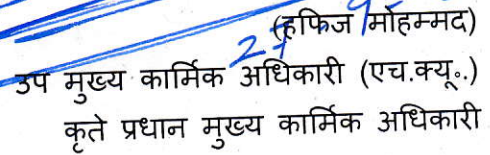 (हफिज मोहम्मद)
उप मुख्य कार्मिक अधिकारी (एच.क्यू॰.)
कृते प्रधान मुख्य कार्मिक अधिकारी